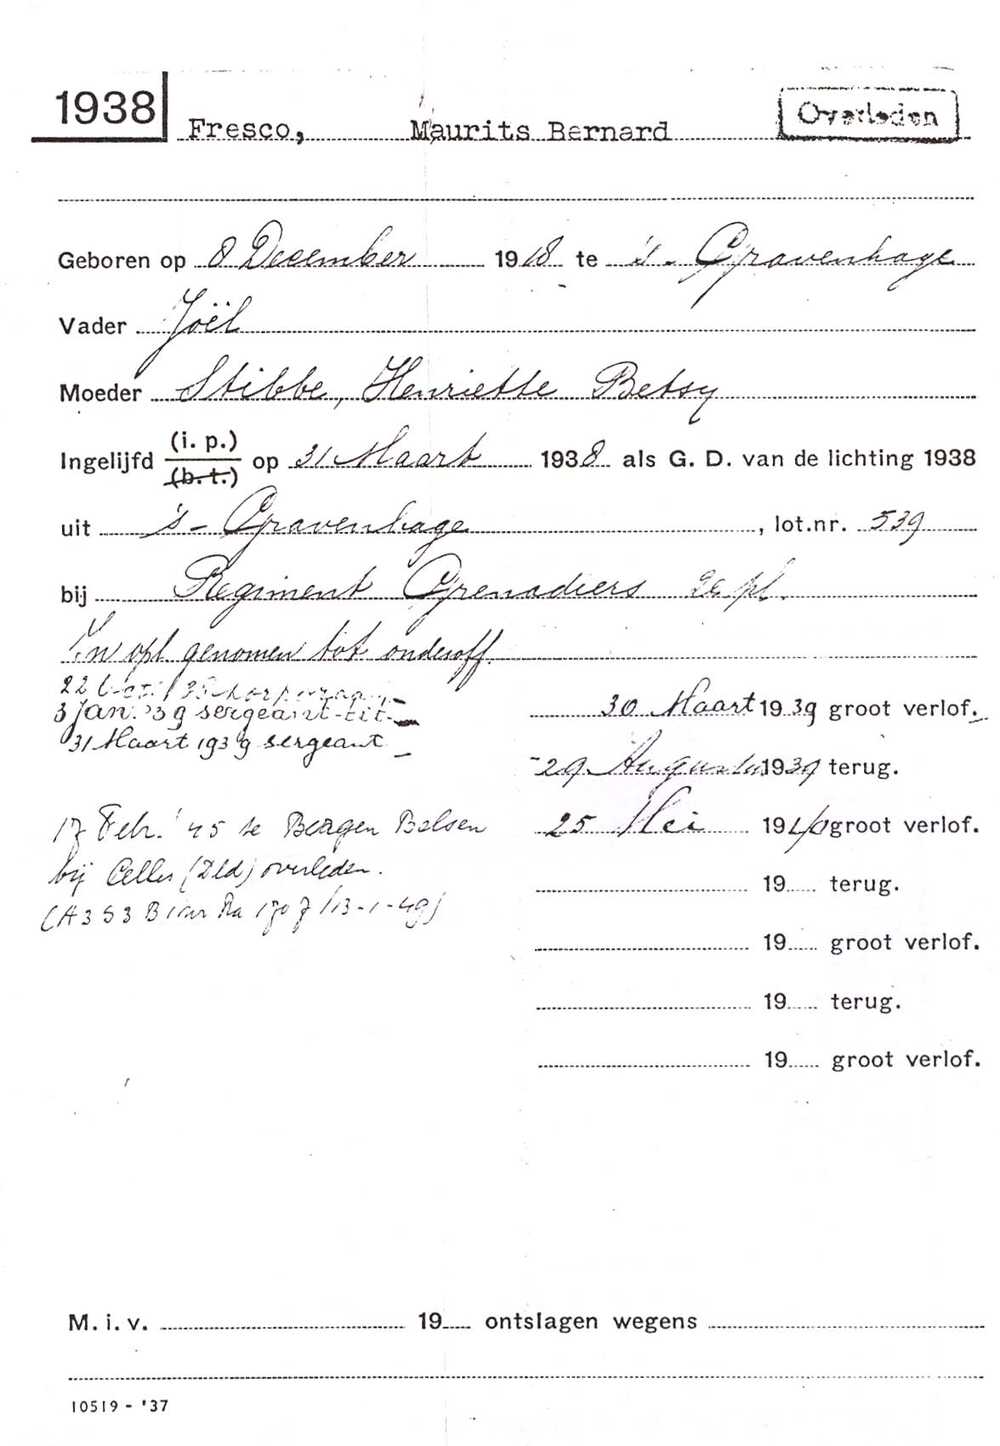 1938
Fresco, Maurits Bernard
Overleden
Geboren op 8 December 1918 te 's-Gravenhage
Vader Joël
Moeder Stibbe, Henriette Betsy
Ingelijfd (i. p.) (b. t.) op 31 Maart 1938 als G. D. van de lichting 1938
uit 's-Gravenhage, lot.nr. 539
bij Regiment Grenadiers 2e pl.
In opl genomen tot onderoff.
3 Jan. '39 sergeant-tit.
31 Maart 1939 sergeant
30 Maart 1939 groot verlof.
29 Augustus 1939 terug.
25 Mei 1940 groot verlof.
17 Febr. '45 te Bergen Belsen
bij Celle (Dld) overleden.
(A3 S3 B 1707/13-1-49)
19 terug.
19 groot verlof.
19 terug.
19 groot verlof.
M. i. v. 19 ontslagen wegens
10519 - '37